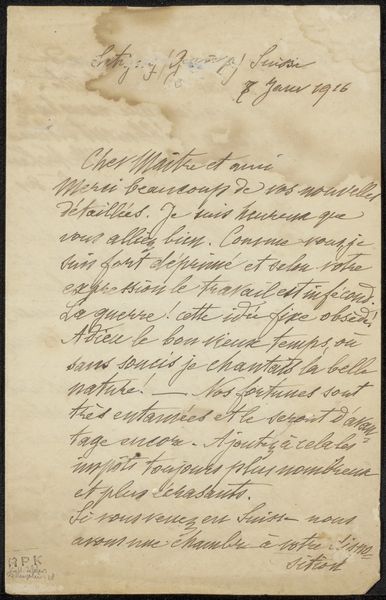 Satigny (Genève) Suisse
7 Janv 1916
Cher Maître et ami
Merci beaucoup de vos nouvelles
détaillées. Je suis heureux que
vous alliez bien. Comme vous je
suis fort déprimé et selon votre
expression le travail est infécond.
La guerre! cette idée fixe obsède!
Adieu le bon vieux temps, où
sans soucis je chantais la belle
nature! — Nos fortunes sont
très entamées et le seront d'avan-
tage encore. Ajoutez à cela les
impôts toujours plus nombreux
et plus écrasants.
Si vous venez en Suisse nous
avons une chambre à votre dispo-
sition